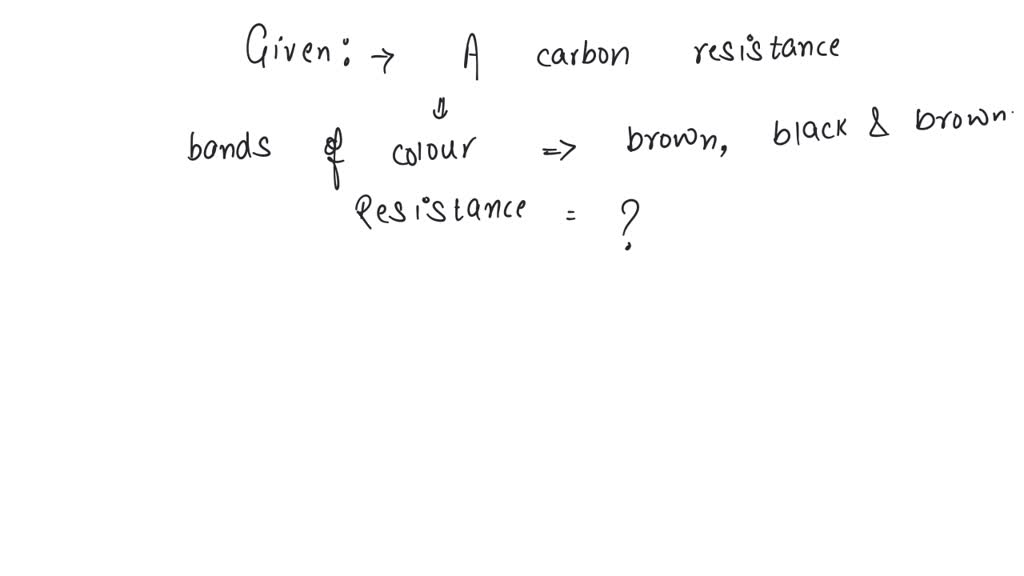 Given: → A carbon resistance
⇓
bands of colour ⇒ brown, black & brown.
Resistance = ?